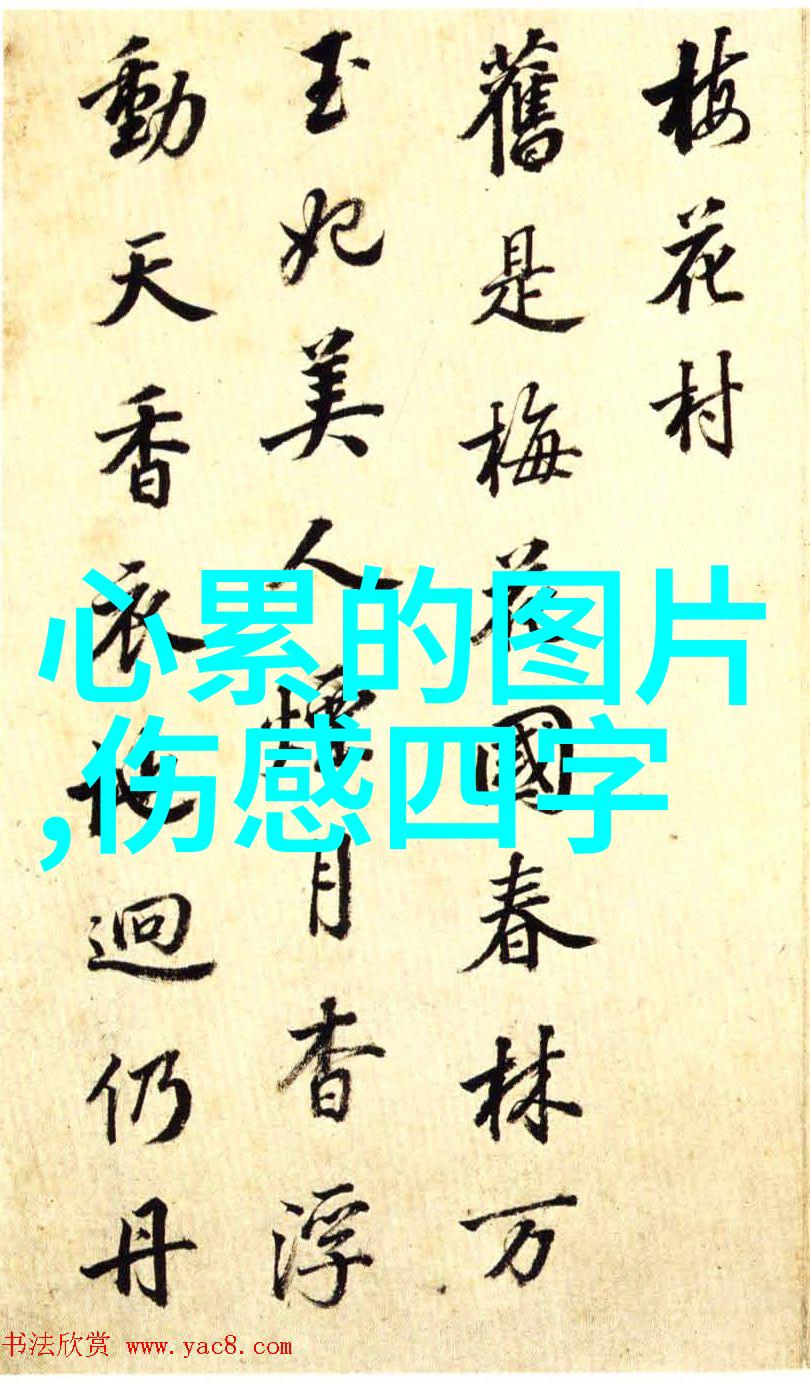 梅花村
舊是梅花國春林万
玉妃美人煙月杳浮
動天香衣迥仍丹
心累的图片
,伤感四字
书法欣赏 www.yac8.com